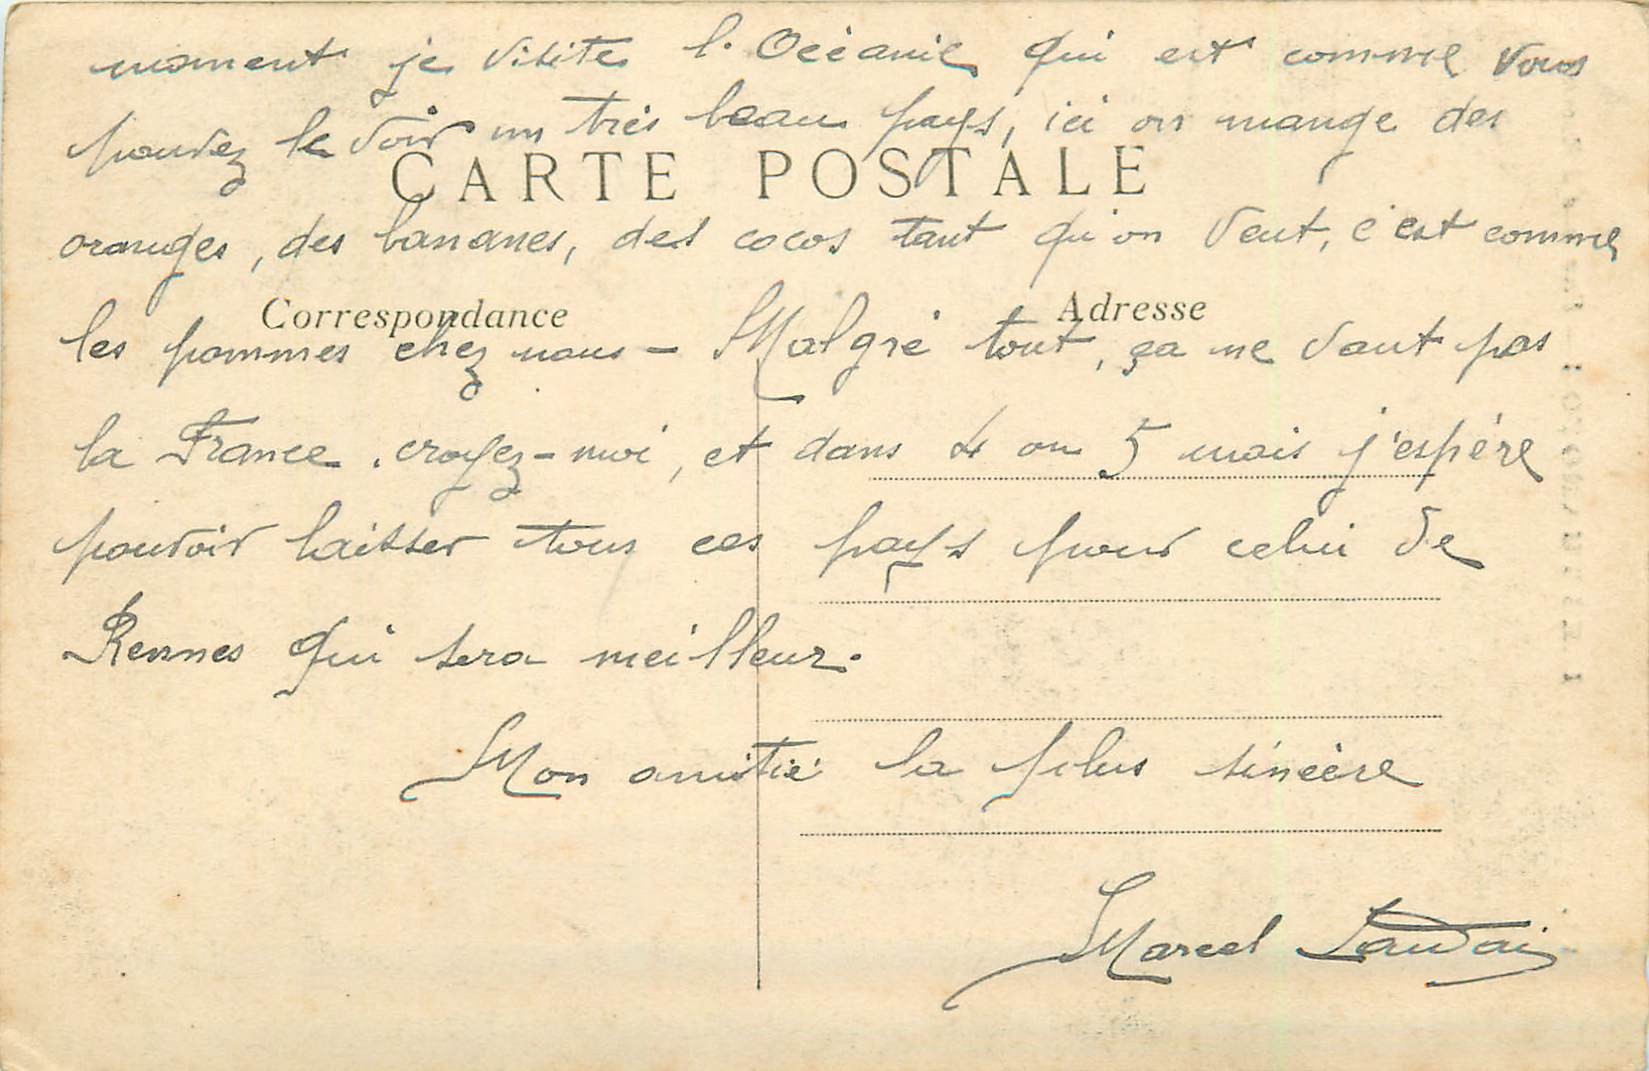 moment je visite l'Océanie qui est comme vous
pouvez le voir un très beau pays, ici on mange des
CARTE POSTALE
oranges, des bananes, des cocos tant qu'on veut, c'est comme
Correspondance
Adresse
les pommes chez nous - Malgré tout, ça ne vaut pas
la France, croyez-moi, et dans 4 ou 5 mois j'espère
pouvoir laisser tous ces pays pour celui de
Rennes qui sera meilleur.
Mon amitié la plus sincère
Marcel